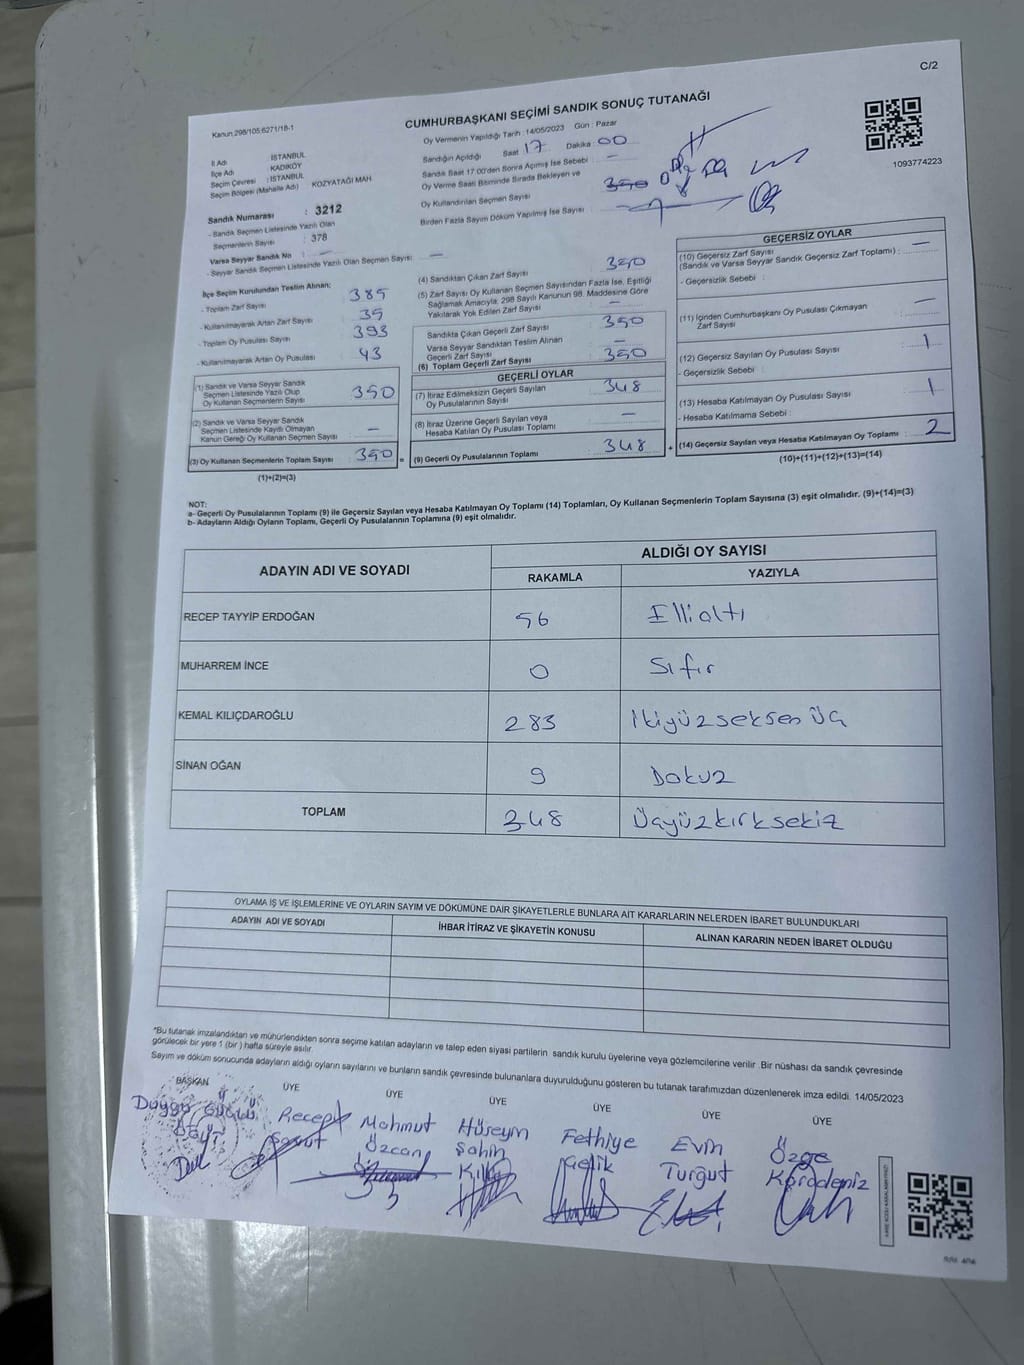 C/2
Kanun 298/105 6271/18-1
CUMHURBAŞKANI SEÇİMİ SANDIK SONUÇ TUTANAĞI
1093774223
İl Adı İSTANBUL
İlçe Adı KADIKÖY
Seçim Çevresi : İSTANBUL
Seçim Bölgesi (Mahalle Adı) KOZYATAĞI MAH.
Sandık Numarası : 3212
- Sandık Seçmen Listesinde Yazılı Olan
Seçmenlerin Sayısı : 378
Varsa Seyyar Sandık No
- Seyyar Sandık Seçmen Listesinde Yazılı Olan Seçmen Sayısı : —
Oy Vermenin Yapıldığı Tarih : 14/05/2023 Gün : Pazar
Sandığın Açıldığı Saat : 17 Dakika : 00
Sandık Saat 17:00'den Sonra Açımış İse Sebebi : —
Oy Verme Saati Bitiminde Sırada Bekleyen ve
Oy Kullandırılan Seçmen Sayısı 350 0
Birden Fazla Sayım Döküm Yapılmış İse Sayısı
İlçe Seçim Kurulundan Teslim Alınan:
- Toplam Zarf Sayısı 385
- Kullanılmayarak Artan Zarf Sayısı 35
- Toplam Oy Pusulası Sayısı 393
- Kullanılmayarak Artan Oy Pusulası 43
(1) Sandık ve Varsa Seyyar Sandık
Seçmen Listesinde Yazılı Olup
Oy Kullanan Seçmenlerin Sayısı 350
(2) Sandık ve Varsa Seyyar Sandık
Seçmen Listesinde Kaydı Olmayan
Kanun Gereği Oy Kullanan Seçmen Sayısı : —
(3) Oy Kullanan Seçmenlerin Toplam Sayısı 350 =
(1)+(2)=(3)
(4) Sandıktan Çıkan Zarf Sayısı 350
(5) Zarf Sayısı Oy Kullanan Seçmen Sayısından Fazla İse, Eşitliği
Sağlamak Amacıyla, 298 Sayılı Kanunun 98. Maddesine Göre
Yakılarak Yok Edilen Zarf Sayısı : —
Sandıkta Çıkan Geçerli Zarf Sayısı 350
Varsa Seyyar Sandıktan Teslim Alınan
Geçerli Zarf Sayısı —
(6) Toplam Geçerli Zarf Sayısı 350
GEÇERLİ OYLAR
(7) İtiraz Edilmeksizin Geçerli Sayılan
Oy Pusulalarının Sayısı 348
(8) İtiraz Üzerine Geçerli Sayılan veya
Hesaba Katılan Oy Pusulası Toplamı : —
(9) Geçerli Oy Pusulalarının Toplamı : 348 +
GEÇERSİZ OYLAR
(10) Geçersiz Zarf Sayısı
(Sandık ve Varsa Seyyar Sandık Geçersiz Zarf Toplamı) : —
- Geçersizlik Sebebi :
(11) İçinden Cumhurbaşkanı Oy Pusulası Çıkmayan
Zarf Sayısı —
(12) Geçersiz Sayılan Oy Pusulası Sayısı 1
- Geçersizlik Sebebi :
(13) Hesaba Katılmayan Oy Pusulası Sayısı 1
- Hesaba Katılmama Sebebi :
(14) Geçersiz Sayılan veya Hesaba Katılmayan Oy Toplamı : 2
(10)+(11)+(12)+(13)=(14)
NOT:
a- Geçerli Oy Pusulalarının Toplamı (9) ile Geçersiz Sayılan veya Hesaba Katılmayan Oy Toplamı (14) Toplamları, Oy Kullanan Seçmenlerin Toplam Sayısına (3) eşit olmalıdır. (9)+(14)=(3)
b- Adayların Aldığı Oyların Toplamı, Geçerli Oy Pusulalarının Toplamına (9) eşit olmalıdır.
ADAYIN ADI VE SOYADI ALDIĞI OY SAYISI
RAKAMLA YAZIYLA
RECEP TAYYİP ERDOĞAN 56 Ellialtı
MUHARREM İNCE 0 Sıfır
KEMAL KILIÇDAROĞLU 283 İkiyüzseksen üç
SİNAN OĞAN 9 Dokuz
TOPLAM 348 Üçyüzkırksekiz
OYLAMA İŞ VE İŞLEMLERİNE VE OYLARIN SAYIM VE DÖKÜMÜNE DAİR ŞİKAYETLERLE BUNLARA AİT KARARLARIN NELERDEN İBARET BULUNDUKLARI
ADAYIN ADI VE SOYADI İHBAR İTİRAZ VE ŞİKAYETİN KONUSU ALINAN KARARIN NEDEN İBARET OLDUĞU
*Bu tutanak imzalandıktan ve mühürlendikten sonra seçime katılan adayların ve talep eden siyasi partilerin sandık kurulu üyelerine veya gözlemcilerine verilir. Bir nüshası da sandık çevresinde
görülecek bir yere 1 (bir) hafta süreyle asılır.
Sayım ve döküm sonucunda adayların aldığı oyların sayılarını ve bunların sandık çevresinde bulunanlara duyurulduğunu gösteren bu tutanak tarafımızdan düzenlenerek imza edildi. 14/05/2023
BAŞKAN ÜYE ÜYE ÜYE ÜYE ÜYE ÜYE
Duygu Güçlü Recep Mahmut Özcan Hüseyin Şahin Fethiye Çelik Evin Turğut Özge Karadeniz